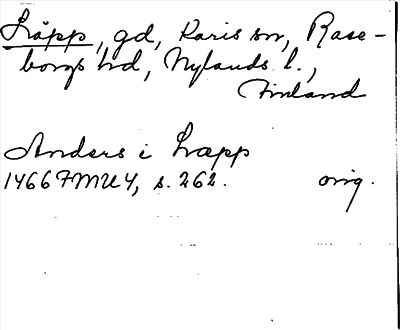 Läpp, gd, Karis sn, Rase-
borgs hd, Nylands l.,
Finland
Anders i Læpp
1466 FMU 4, s. 262. orig.